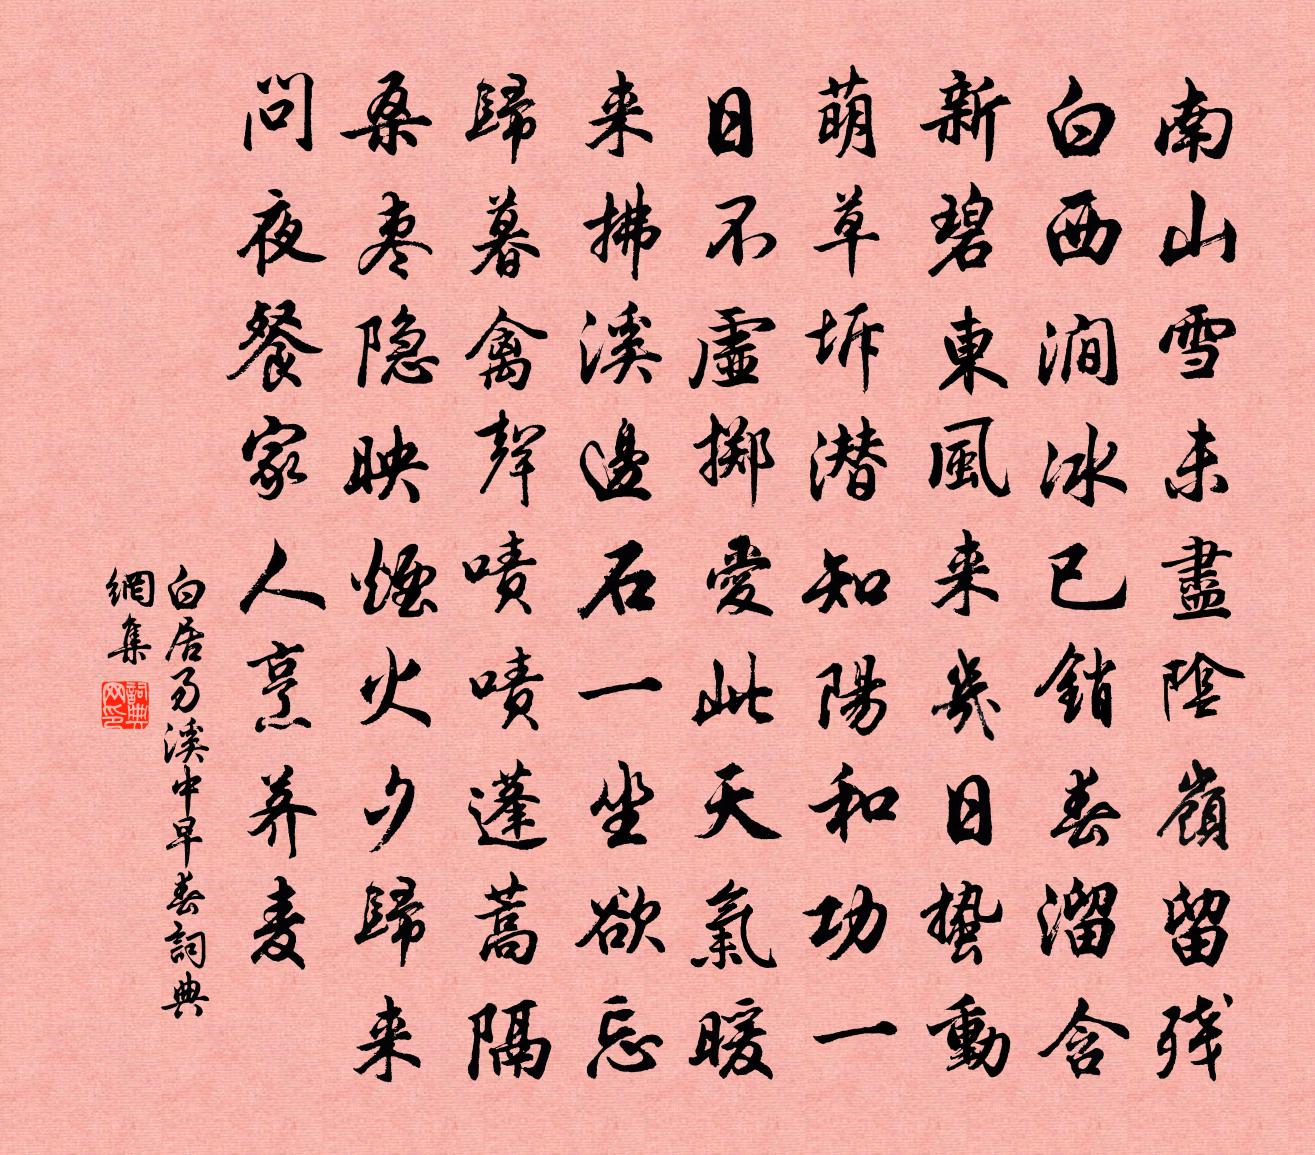 南山雪未盡陰嶺留残
白西澗冰已銷春溜含
新碧東風来幾日蟄動
萌草坼潜知陽和功一
日不虛擲愛此天氣暖
来拂溪邊石一坐欲忘
歸暮禽聲嘖嘖蓬蒿隔
桑枣隐映煙火夕歸来
問夜餐家人烹荞麦
白居易溪中早春詞典
網集
詞典网印